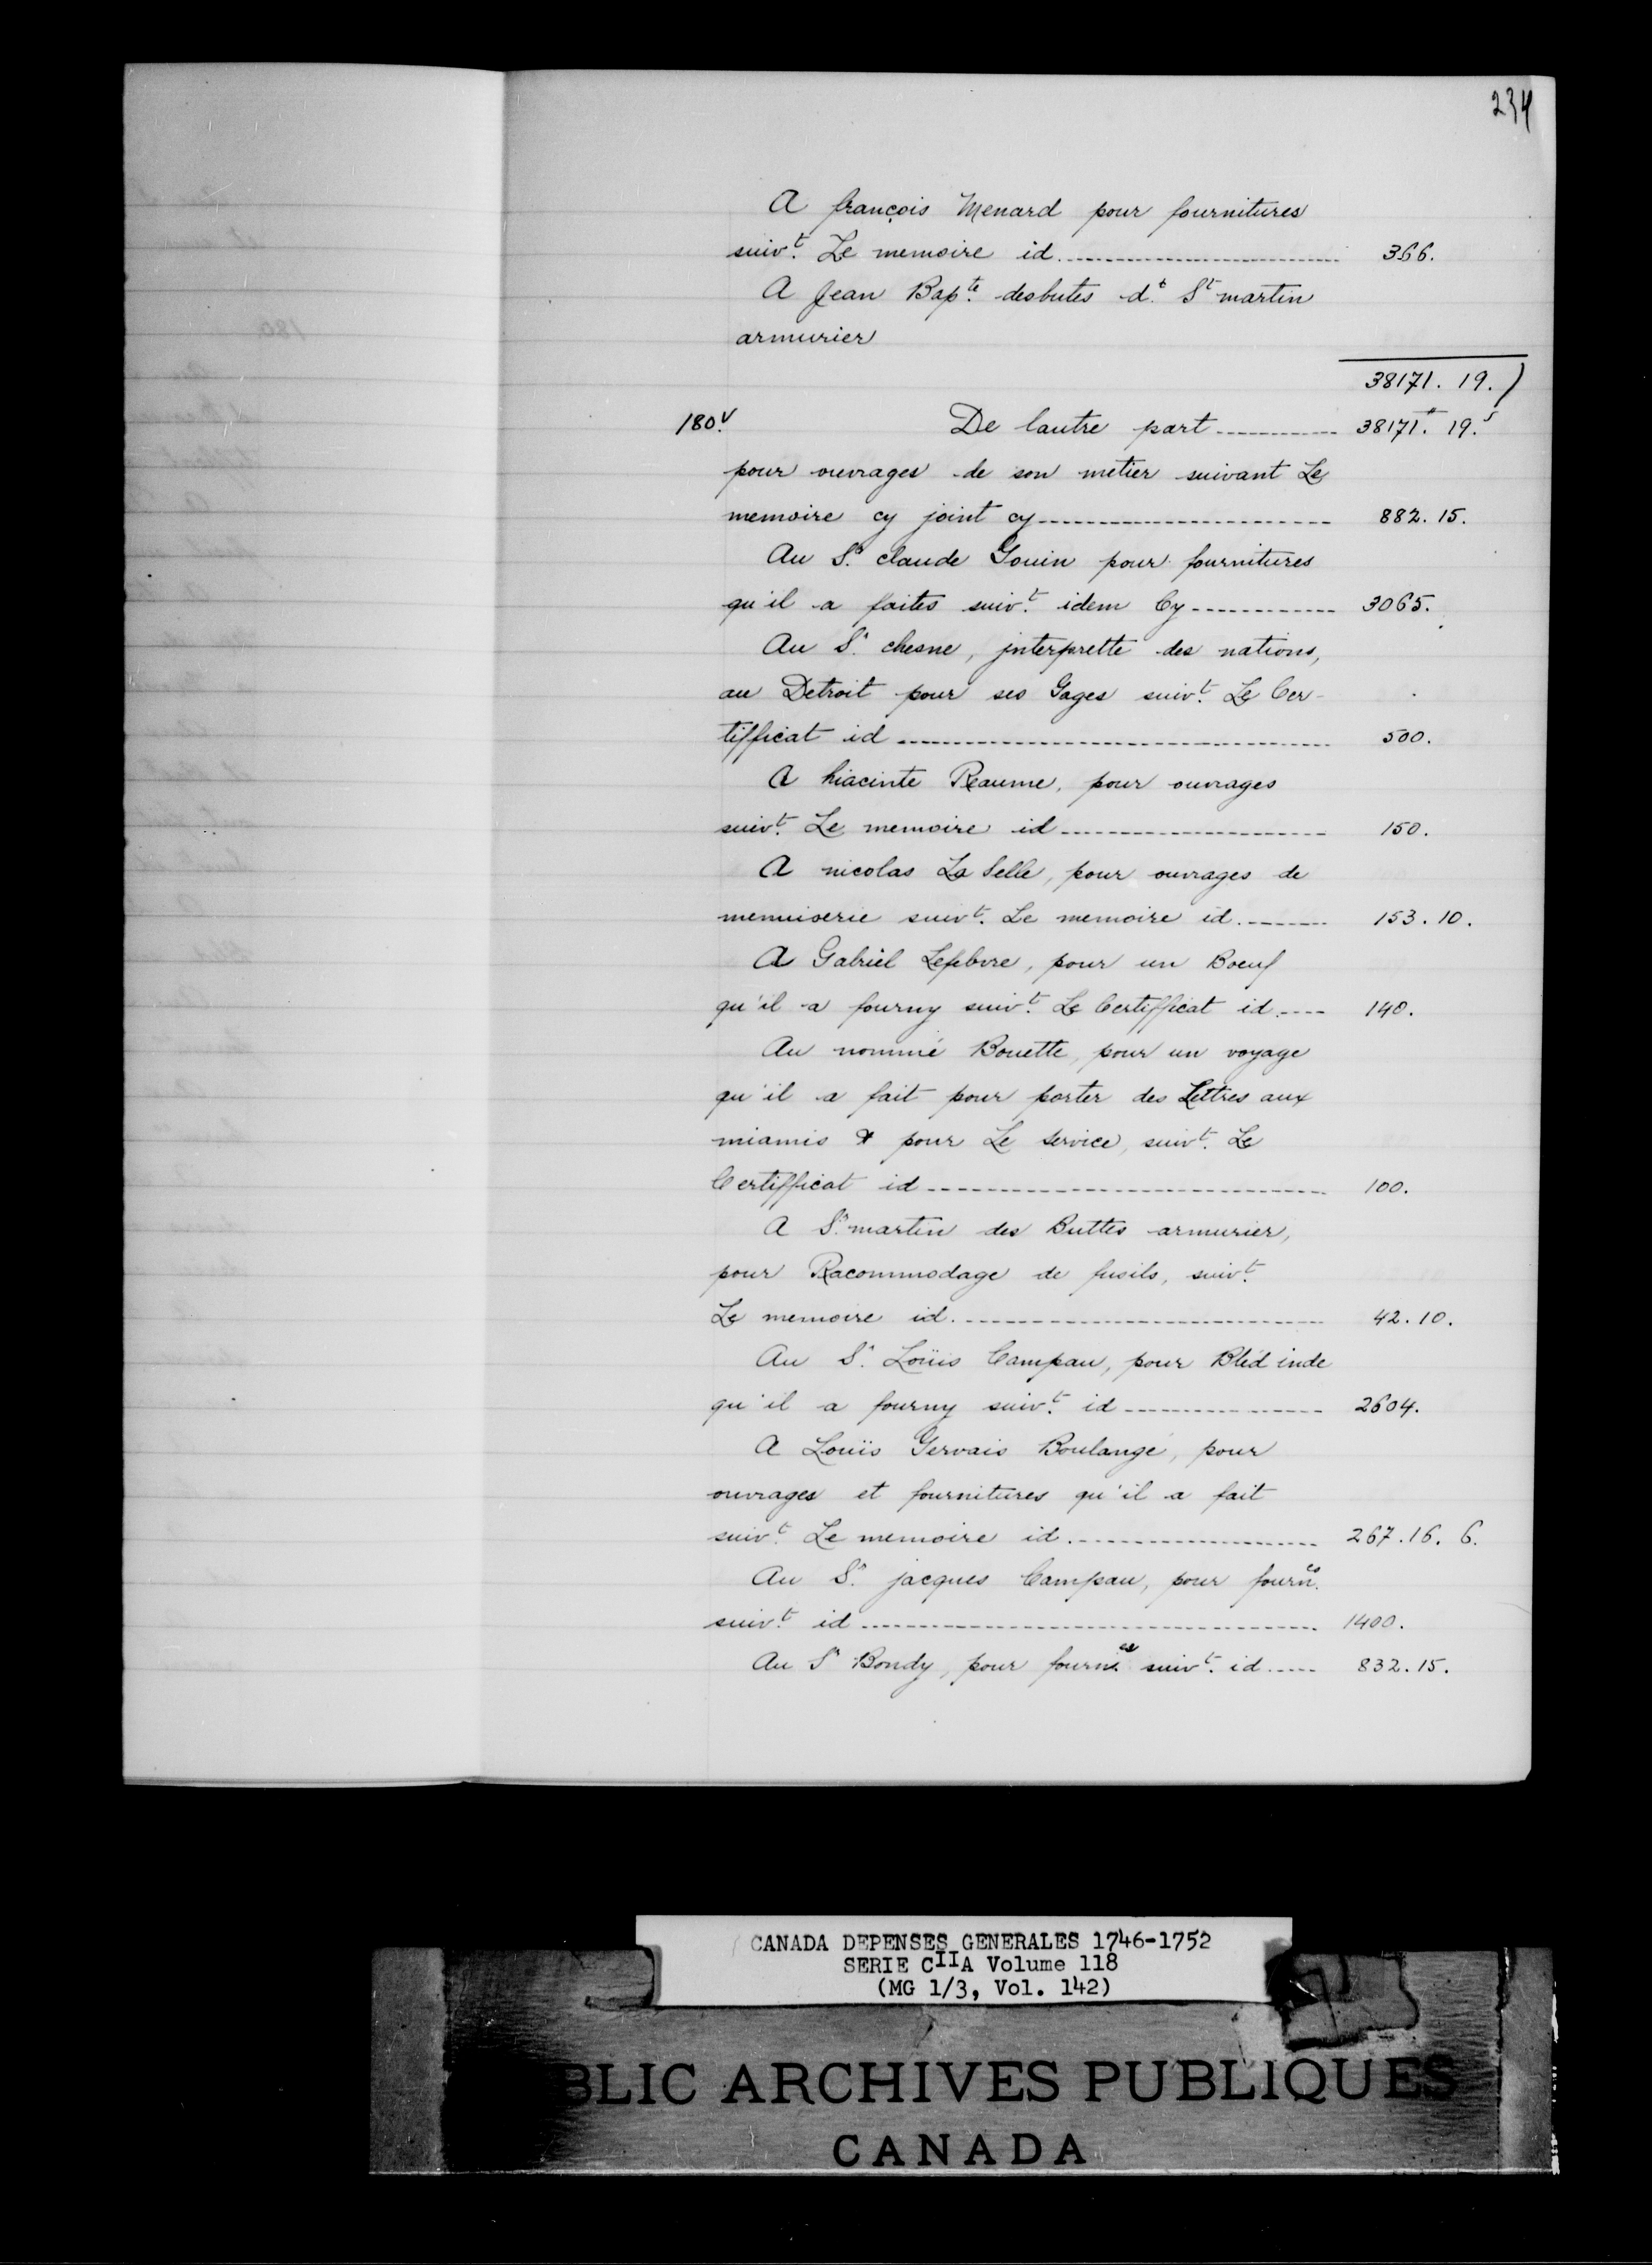 234
A françois Menard pour fournitures
suiv.t Le memoire id. 366.
A Jean Bap.te desbutes d.t S.t martin
armurier
38171. 19.)
180.v De lautre part 38171.# 19.s
pour ouvrages de son metier suivant Le
memoire cy joint cy 882. 15.
Au S.r claude Gouin pour fournitures
qu'il a faites suiv.t idem Cy 3065.
Au S.r chesne, jnterprette des nations,
au Detroit pour ses Gages suiv.t Le Cer-
tifficat id 500.
A hiacinte Reaume, pour ouvrages
suiv.t Le memoire id 150.
A nicolas La Selle, pour ouvrages de
menuiserie suiv.t Le memoire id. 153. 10.
A Gabriel Lefebvre, pour un Boeuf
qu'il a fourny suiv.t Le Certifficat id. 140.
Au nommé Bouette, pour un voyage
qu'il a fait pour porter des Lettres aux
miamis & pour Le Service, suiv.t Le
Certifficat id 100.
A S.t martin des Buttes armurier,
pour Racommodage de fusils, suiv.t
Le memoire id. 42. 10.
Au S.r Loüis Campau, pour Bléd inde
qu'il a fourny suiv.t id 2604.
A Loüis Gervais Boulangé, pour
ouvrages et fournitures qu'il a fait
suiv.t Le memoire id. 267. 16. 6.
Au S.r jacques Campau, pour fourn.es
suiv.t id 1400.
Au S.r Bondy, pour fourn.es suiv.t id 832. 15.
CANADA DEPENSES GENERALES 1746-1752
SERIE CIIA Volume 118
(MG 1/3, Vol. 142)
BLIC ARCHIVES PUBLIQUES
CANADA